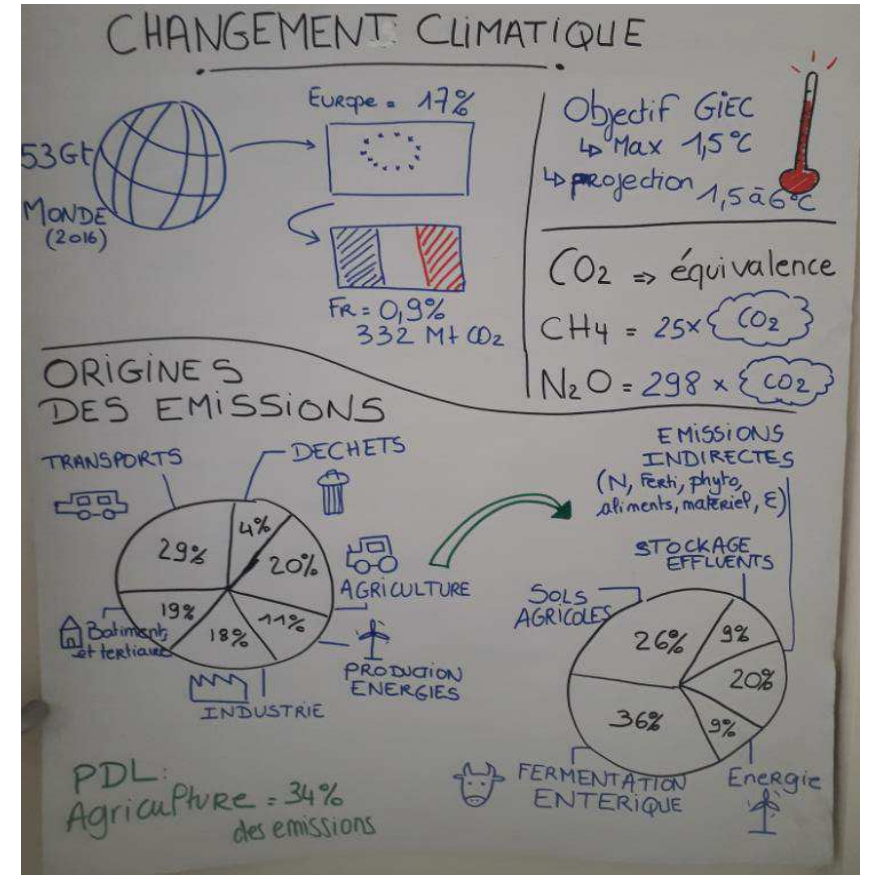 CHANGEMENT CLIMATIQUE
53Gt
MONDE
(2016)
Europe = 17%
FR = 0,9%
332 Mt CO2
Objectif GIEC
↳ Max 1,5°C
↳ projection
1,5 à 6°C
CO2 => équivalence
CH4 = 25x CO2
N2O = 298 x CO2
ORIGINES
DES EMISSIONS
TRANSPORTS
DECHETS
29%
4%
20%
AGRICULTURE
19%
18%
11%
Batiments
et tertiaire
INDUSTRIE
PRODUCTION
ENERGIES
EMISSIONS
INDIRECTES
(N, Ferti, phyto,
aliments, matériel, €)
STOCKAGE
EFFLUENTS
SOLS
AGRICOLES
26%
9%
20%
36%
9%
FERMENTATION
ENTERIQUE
Energie
PDL:
Agriculture = 34%
des emissions